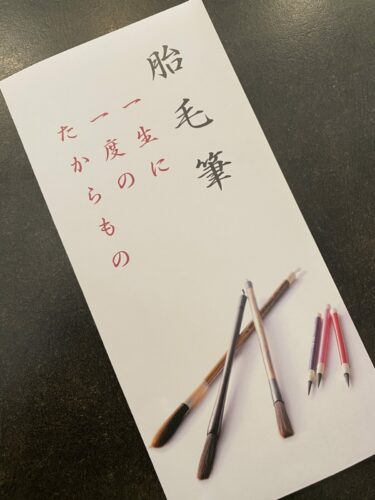 胎毛筆
一生に
一度の
たからもの